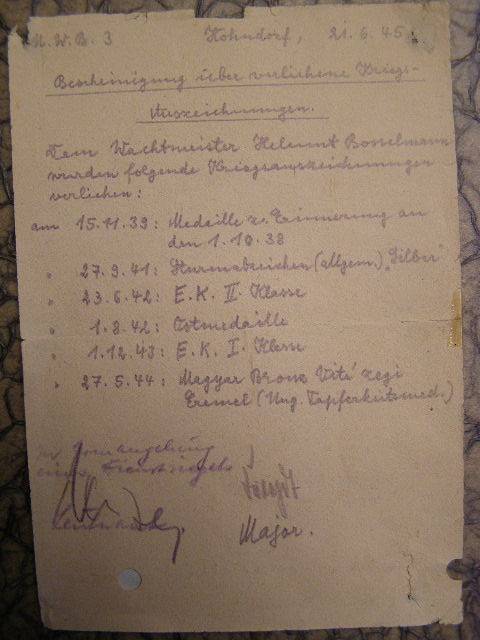 N.W.B. 3 Hohndorf, 21.6.45
Bescheinigung über verliehene Kriegs-
Auszeichnungen.
Dem Wachtmeister Helmut Bosselmann
wurden folgende Kriegsauszeichnungen
verliehen:
am 15.11.39: Medaille z. Erinnerung an
den 1.10.38
" 27.9.41: Sturmabzeichen (allgem.) "Silber"
" 23.6.42: E.K. II. Klasse
" 1.8.42: Ostmedaille
" 1.12.43: E.K. I. Klasse
" 27.5.44: Magyar Bronz Vité zegi
Eremel (Ung. Tapferkeitsmed.)
eines Dienstsiegels
Major.